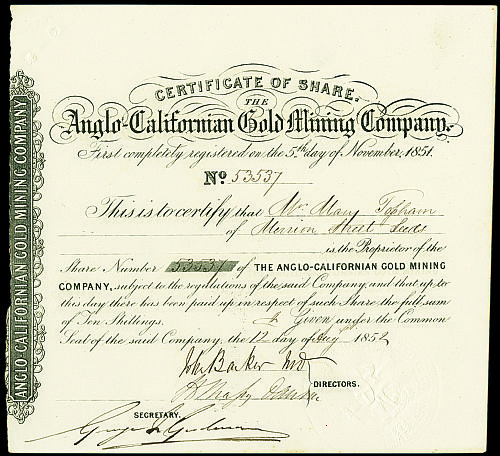 CERTIFICATE OF SHARE.
THE
Anglo-Californian Gold Mining Company.
First completely registered on the 5th day of November, 1851.
No 53537
This is to certify that Mrs Mary Topham
of Merrion Street Leeds
is the Proprietor of the
Share Number 53537 of THE ANGLO-CALIFORNIAN GOLD MINING
COMPANY, subject to the regulations of the said Company and that up to
this day there has been paid up in respect of such Share the full sum
of Ten Shillings. Given under the Common
Seal of the said Company, the 12 day of Augt 1852
John Barker
DIRECTORS.
SECRETARY.
ANGLO-CALIFORNIAN GOLD MINING COMPANY